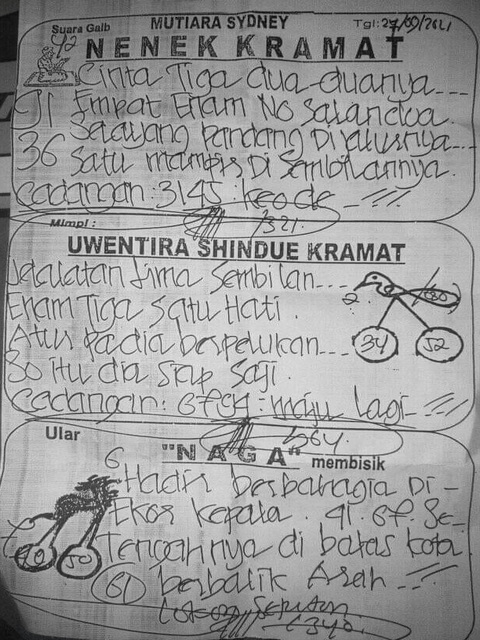 Suara Gaib
MUTIARA SYDNEY
Tgl: 27/09/2021
42
NENEK KRAMAT
Cinta Tiga dua duanya---
91 Empat Enam No Salandua.
Selayang Pandang Di
36 Satu mampis Di Sembilannya.
Cadangan: 3145: keode
1321.
Mimpi:
UWENTIRA SHINDUE KRAMAT
lima Sembilan---
Enam Tiga Satu Hati.
dia berpelukan---
30 itu dia Siap Saji.
34
52
Cadangan: 6704: maju lagi-
Ular
"NAGA" membisik
6 Hadir berbahagia Di-
Ekor kepala. 41. 67. Se-
Tengahnya di batas kota
10
50
61 berbalik Arah